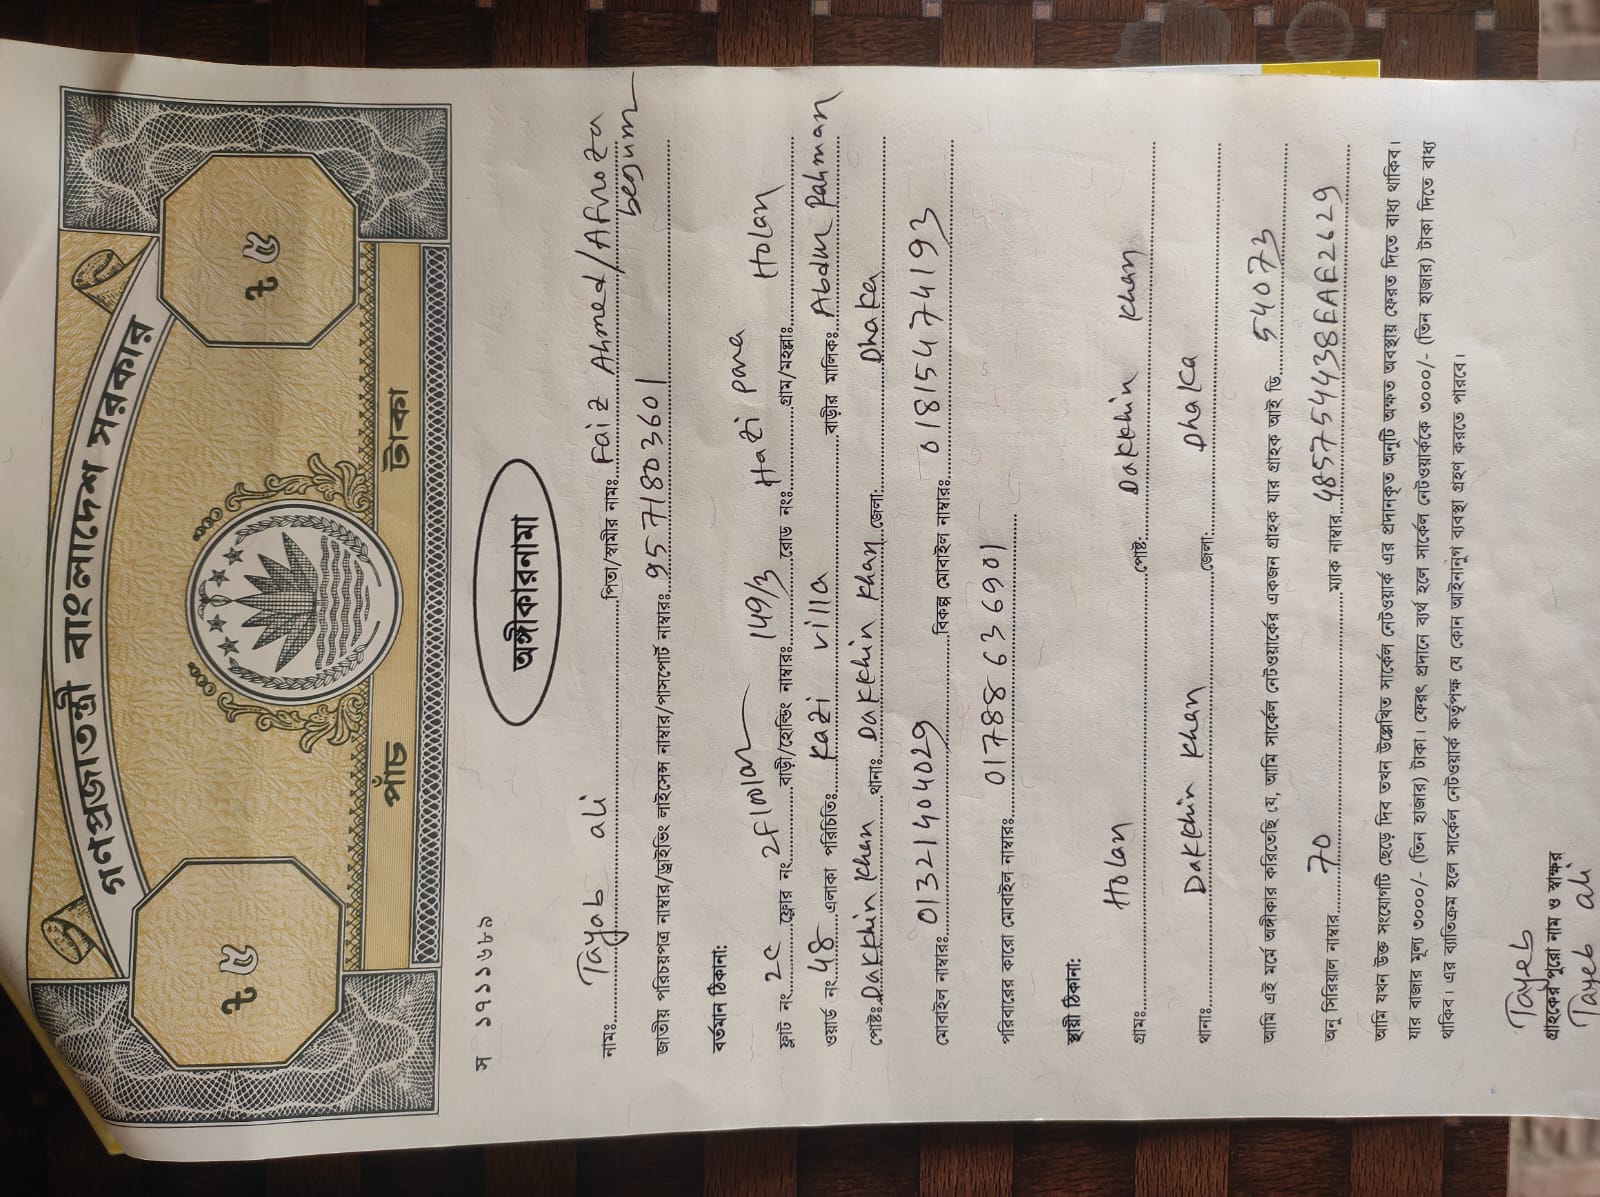 গণপ্রজাতন্ত্রী বাংলাদেশ সরকার
৳ ৫ ৳ ৫
পাঁচ টাকা
স ১৭১১৬৮৯
অঙ্গীকারনামা
নামঃ Tayab ali পিতা/স্বামীর নামঃ Faiz Ahmed/Afroza begum
জাতীয় পরিচয়পত্র নাম্বার/ড্রাইভিং লাইসেন্স নাম্বার/পাসপোর্ট নাম্বারঃ 9571803601
বর্তমান ঠিকানা:
ফ্লাট নং 2C ফ্লোর নং 2F বাড়ী/হোল্ডিং নাম্বারঃ 149/3 রোড নংঃ Hazi para গ্রাম/মহল্লাঃ Holan
ওয়ার্ড নং 48 এলাকা পরিচিতিঃ Kazi villa বাড়ীর মালিকঃ Abdur Rahman
পোষ্টঃ Dakkhin Khan থানাঃ Dakkhin Khan জেলা: Dhaka
মোবাইল নাম্বারঃ 01321404029 বিকল্প মোবাইল নাম্বারঃ 01815474193
পরিবারের কারো মোবাইল নাম্বারঃ 01788636901
স্থায়ী ঠিকানা:
গ্রামঃ Holan পোষ্ট: Dakkhin Khan
থানাঃ Dakkhin Khan জেলা: Dhaka
আমি এই মর্মে অঙ্গীকার করিতেছি যে, আমি সার্কেল নেটওয়ার্কের একজন গ্রাহক যার গ্রাহক আই ডি 54073
অনু সিরিয়াল নাম্বার 70 ম্যাক নাম্বার 48575443BEAE2629
আমি যখন উক্ত সংযোগটি ছেড়ে দিব তখন উল্লেখিত সার্কেল নেটওয়ার্ক এর প্রদানকৃত অনুটি অক্ষত অবস্থায় ফেরত দিতে বাধ্য থাকিব।
যার বাজার মূল্য ৩০০০/- (তিন হাজার) টাকা। ফেরৎ প্রদানে ব্যর্থ হলে সার্কেল নেটওয়ার্ককে ৩০০০/- (তিন হাজার) টাকা দিতে বাধ্য
থাকিব। এর ব্যতিক্রম হলে সার্কেল নেটওয়ার্ক কর্তৃপক্ষ যে কোন আইনানুগ ব্যবস্থা গ্রহণ করতে পারবে।
Tayeb
গ্রাহকের পুরো নাম ও স্বাক্ষর
Tayeb ali